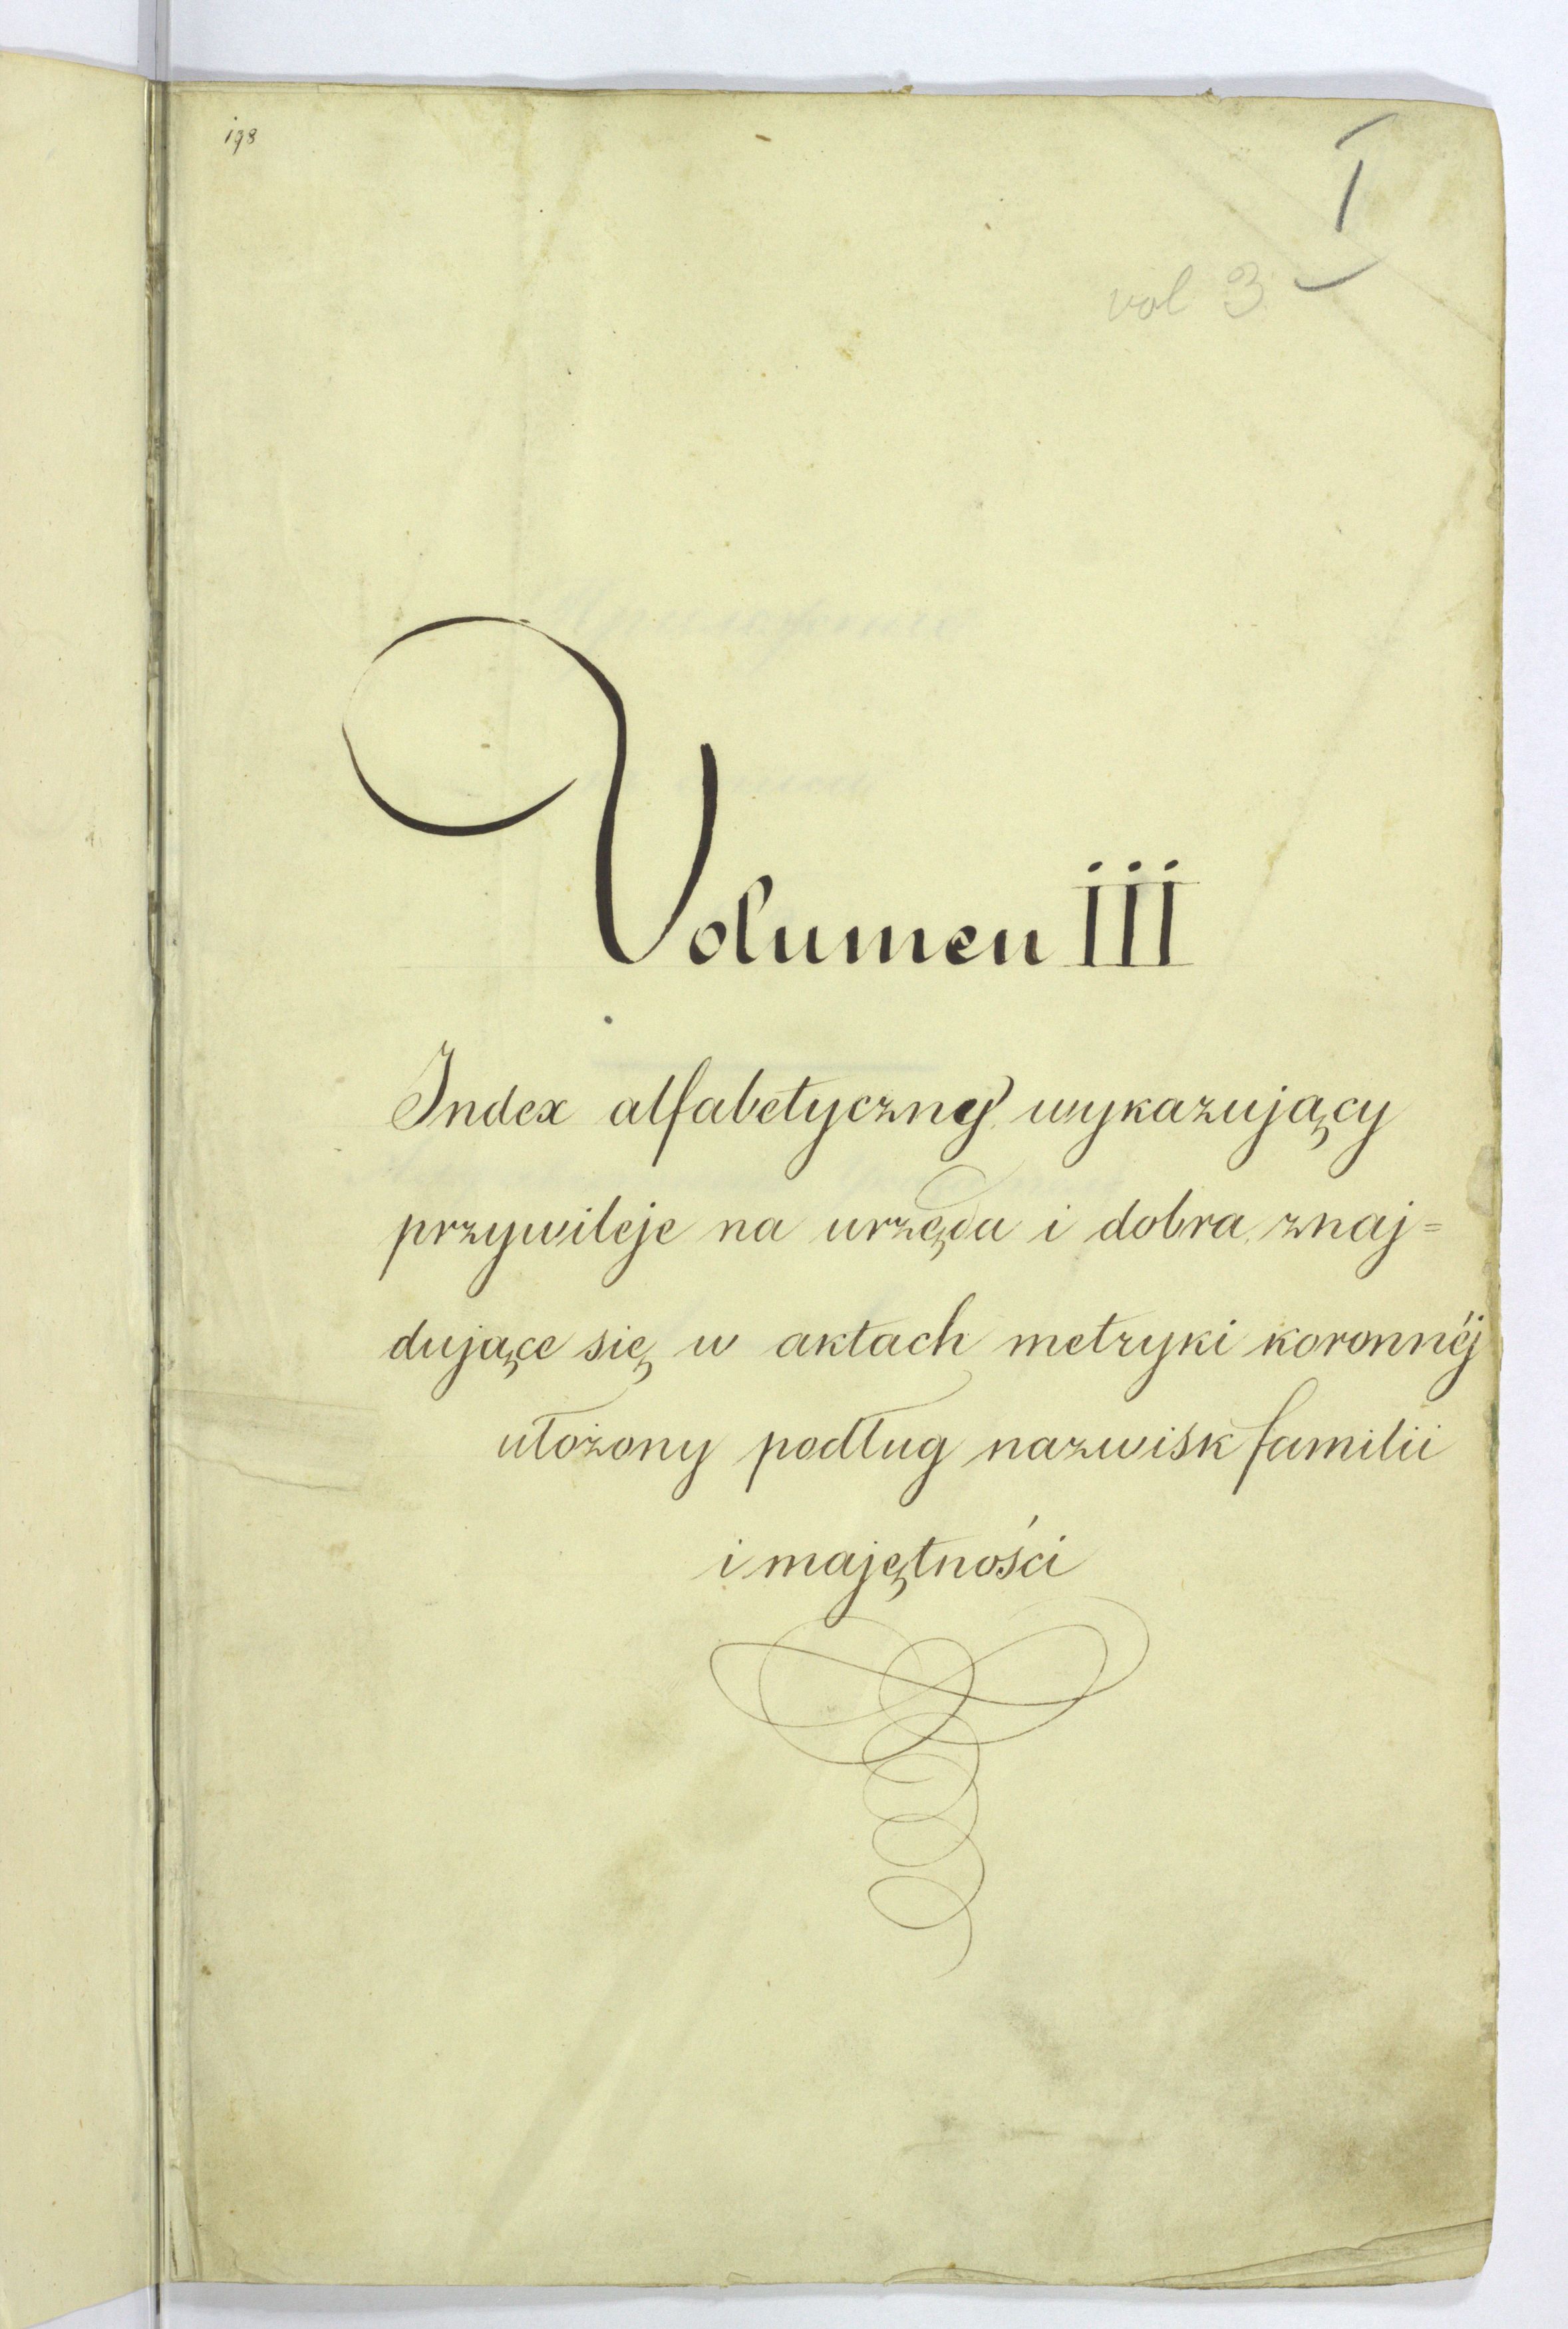 198
I
vol 3
Volumen III
Index alfabetyczny wykazujący
przywileje na urzęda i dobra znaj=
dujące się w aktach metryki koronnéj
ułożony podług nazwisk familii
i majętności